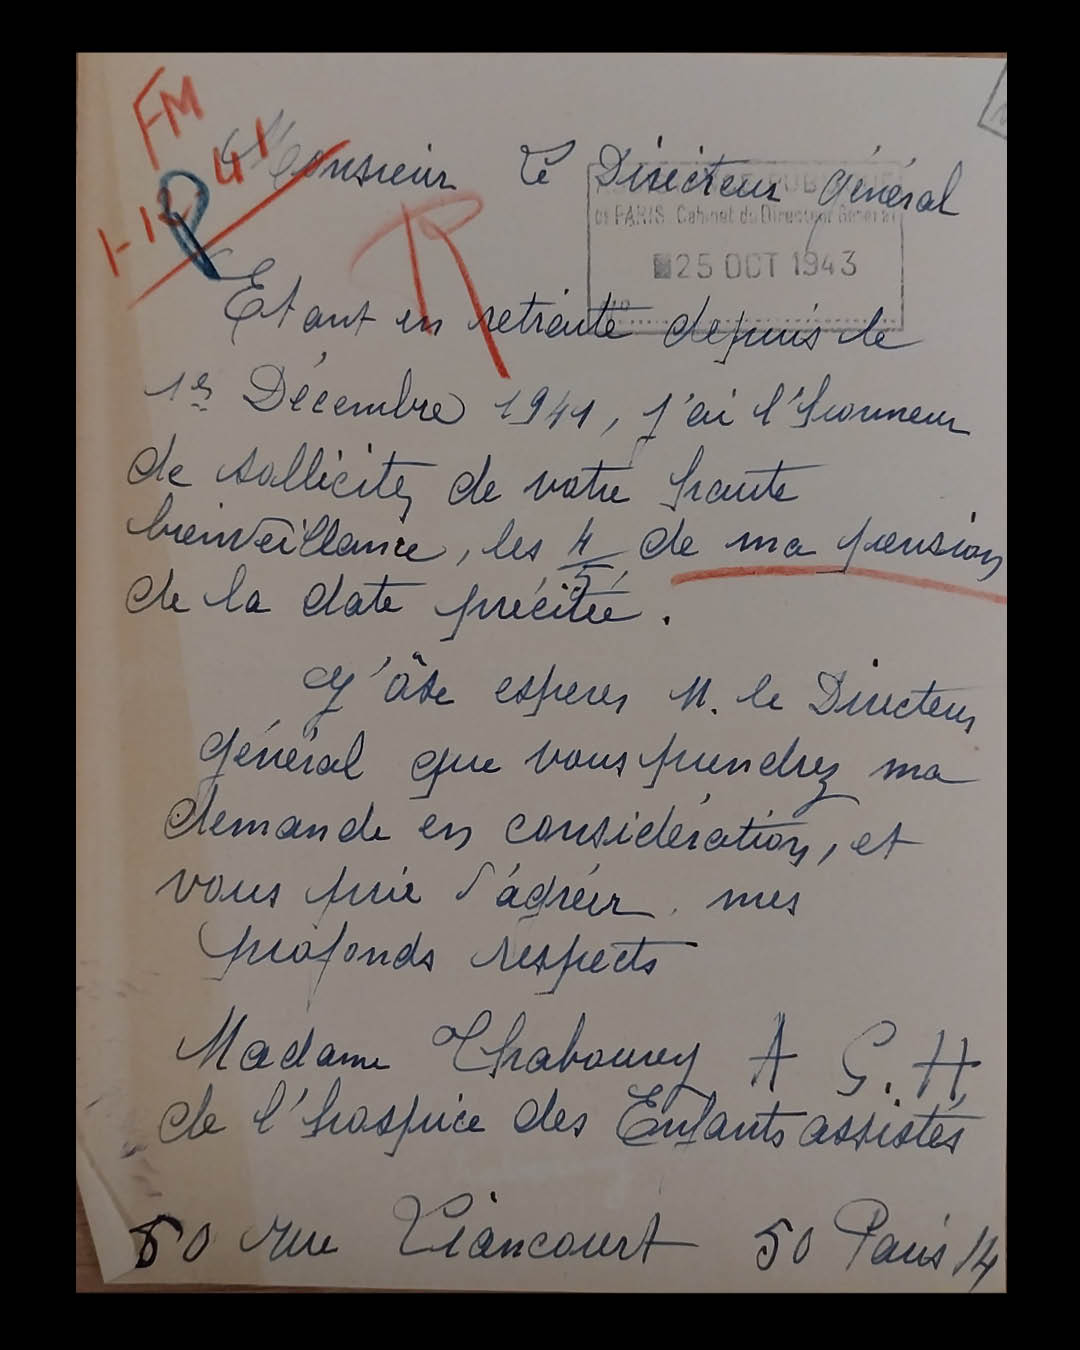 FM
1-12-41
R
R
Monsieur Le Directeur général
PUBLIQUE
DE PARIS Cabinet du Directeur Général
25 OCT 1943
Etant en retraite depuis le
1er Décembre 1941, j'ai l'honneur
de sollicite de votre haute
bienveillance, les 4/5 de ma pension
de la date précitée.
J'ôse esperer M. le Directeur
général que vous prendrez ma
demande en considération, et
vous prie d'agréer mes
profonds respects
Madame A G. H
de l'hospice des Enfants assistés
50 rue Liancourt 50 Paris 14